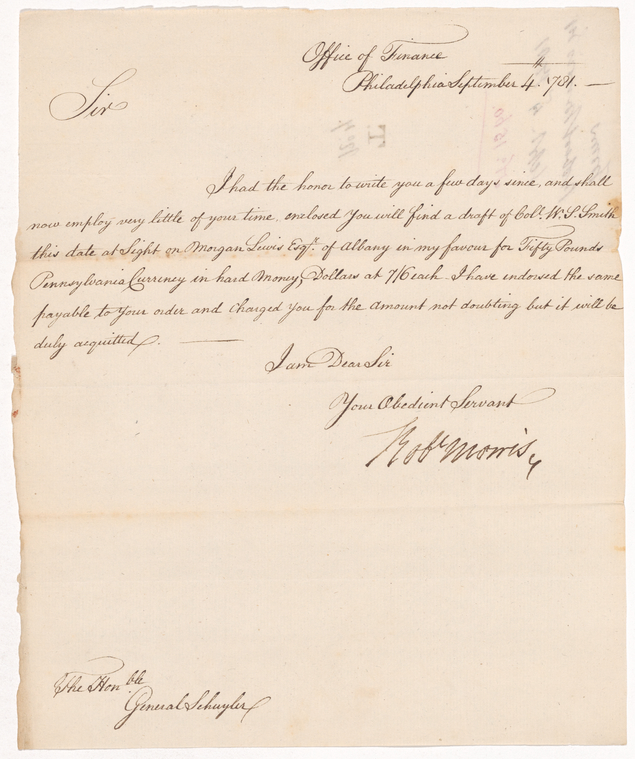 Office of Finance
Philadelphia September 4th. 1781.
Sir
I had the honor to write you a few days since, and shall
now employ very little of your time, enclosed you will find a draft of Colo. W. S. Smith
this date at Sight on Morgan Lewis Esqr. of Albany in my favour for Fifty Pounds
Pennsylvania Currency in hard Money, Dollars at 7/6 each. I have endorsed the same
payable to your order and charged you for the amount not doubting but it will be
duly acquitted.
I am Dear Sir
Your Obedient Servant
Robt Morris
The Honble
General Schuyler